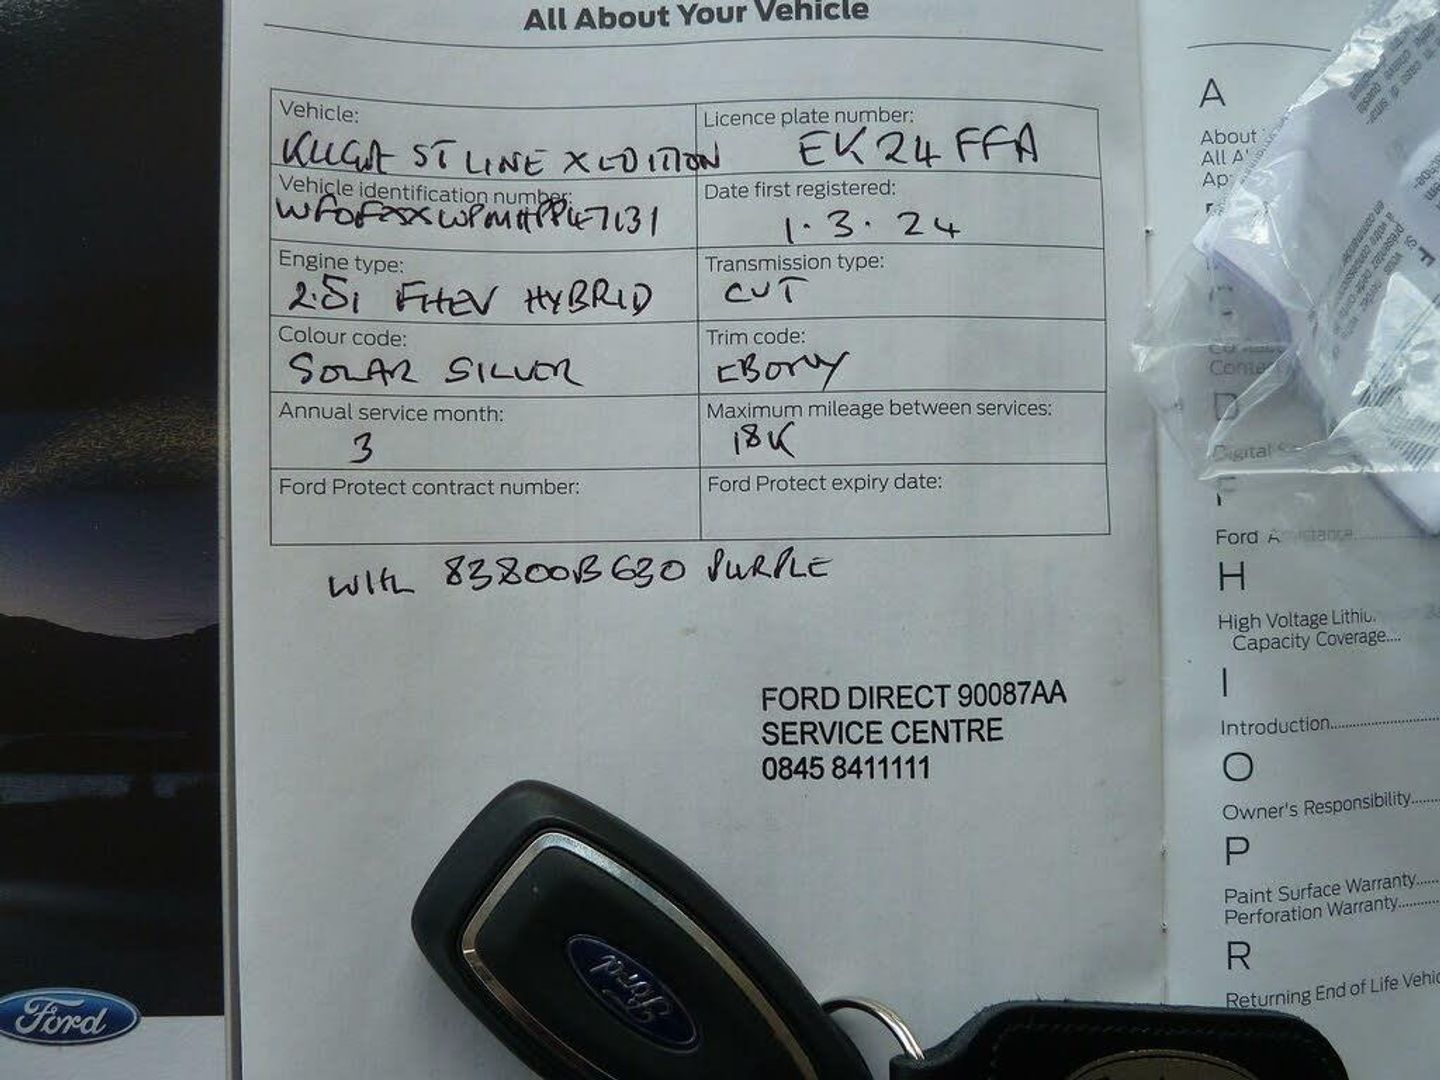 All About Your Vehicle
Vehicle:
KUGA ST LINE X EDITION
Licence plate number:
EK24 FFA
Vehicle identification number:
Date first registered:
1.3.24
Engine type:
2.5i FHEV HYBRID
Transmission type:
CVT
Colour code:
SOLAR SILVER
Trim code:
EBONY
Annual service month:
3
Maximum mileage between services:
18K
Ford Protect contract number:
Ford Protect expiry date:
83800B630 PURPLE
FORD DIRECT 90087AA
SERVICE CENTRE
0845 8411111
Ford
Ford
A
About
All A
Ap
D
Digital
F
Ford Assistance
H
High Voltage Lithiu
Capacity Coverage....
I
Introduction
O
Owner's Responsibility
P
Paint Surface Warranty
Perforation Warranty
R
Returning End of Life Vehic